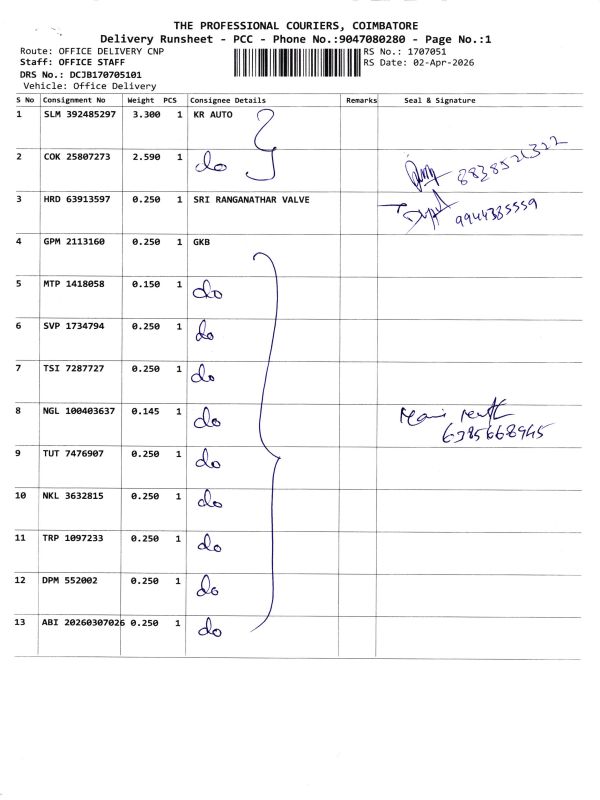 THE PROFESSIONAL COURIERS, COIMBATORE
Delivery Runsheet - PCC - Phone No.:9047080280 - Page No.:1
Route: OFFICE DELIVERY CNP RS No.: 1707051
Staff: OFFICE STAFF RS Date: 02-Apr-2026
DRS No.: DCJB170705101
Vehicle: Office Delivery
S No Consignment No Weight PCS Consignee Details Remarks Seal & Signature
1 SLM 392485297 3.300 1 KR AUTO
2 COK 25807273 2.590 1 do 8838521322
3 HRD 63913597 0.250 1 SRI RANGANATHAR VALVE 9944385559
4 GPM 2113160 0.250 1 GKB
5 MTP 1418058 0.150 1 do
6 SVP 1734794 0.250 1 do
7 TSI 7287727 0.250 1 do
8 NGL 100403637 0.145 1 do
6385668945
9 TUT 7476907 0.250 1 do
10 NKL 3632815 0.250 1 do
11 TRP 1097233 0.250 1 do
12 DPM 552002 0.250 1 do
13 ABI 20260307026 0.250 1 do